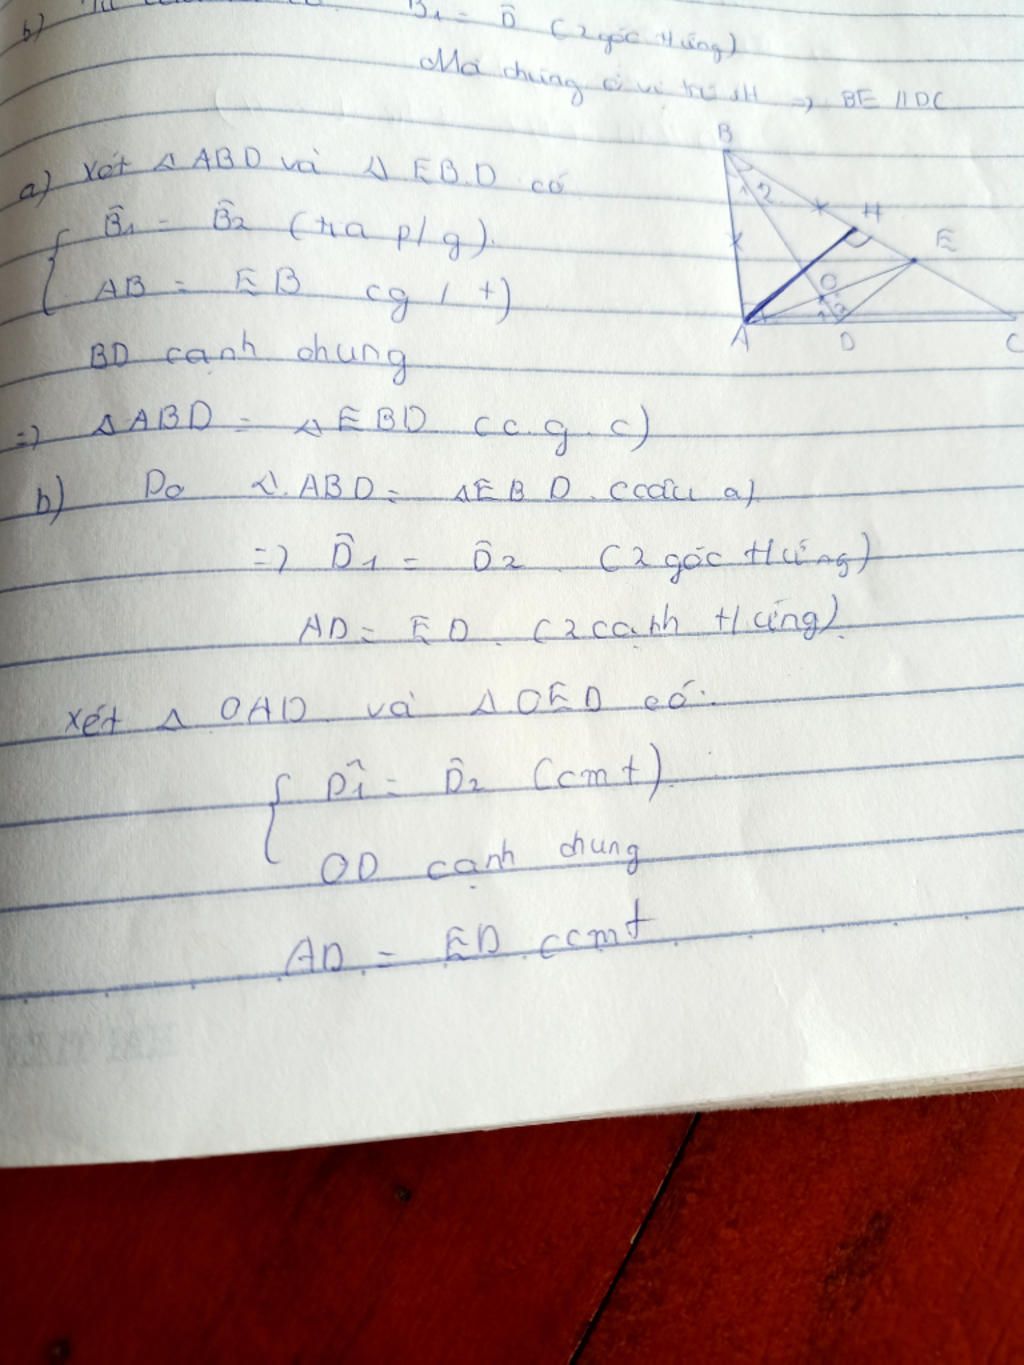 b)
B̂₁ = D̂ (2 góc t/ứng)
Mà chúng ở vị trí slt => BE // DC
a) Xét Δ ABD và Δ EBD có
B̂₁ = B̂₂ (tia p/g).
AB = EB (g/t)
BD cạnh chung
=> Δ ABD = Δ EBD (c.g.c)
b) Do Δ.ABD = ΔEBD (câu a)
=> D̂₁ = D̂₂ (2 góc t/ứng)
AD = ED. (2 cạnh t/ứng).
Xét Δ OAD và Δ OED có:
D̂₁ = D̂₂ (cmt).
OD cạnh chung
AD = ED (cmt
B
1 2
H
E
O
1 2
A D C